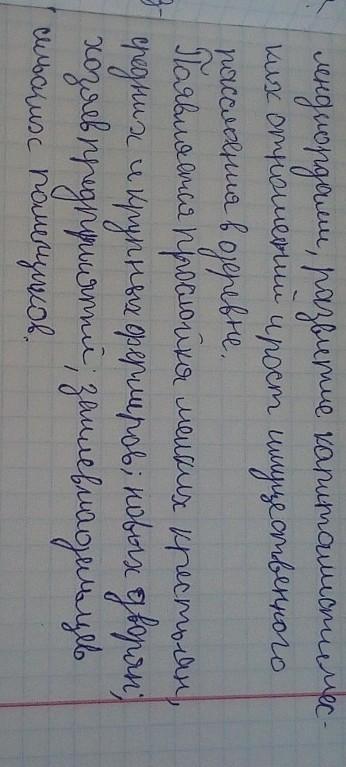 лендлордами, развитие капиталистичес-
ких отношений и рост имущественного
расслоения в деревне.
Появляется прослойка мелких крестьян,
средних и крупных фермеров; новых дворян;
хозяев предприятий; землевладельцев
сильных помещиков.